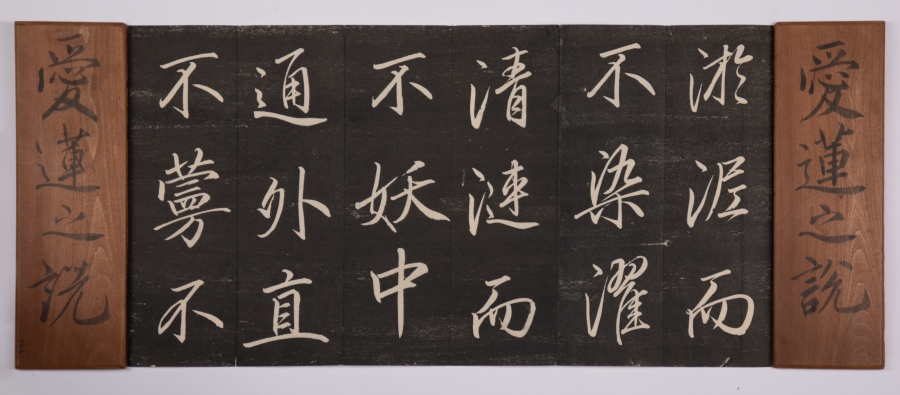 愛蓮之說
淤泥而
不染濯
清漣而
不妖中
通外直
不蔓不
愛蓮之説